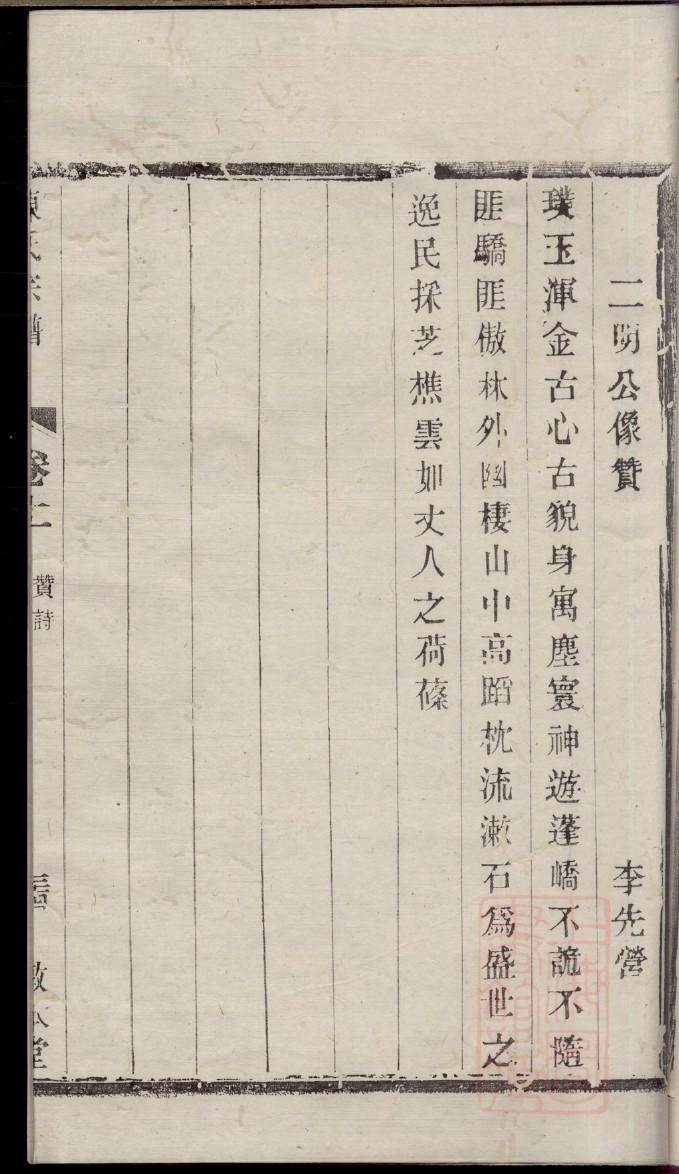 二明公像贊 李先營
璞玉渾金古心古貌身寓塵寰神遊蓬嶠不詭不隨
匪驕匪傲林外幽棲山中高蹈枕流漱石爲盛世之
逸民採芝樵雲如丈人之荷蓧
氏宗譜 卷上 贊詩 敦本堂